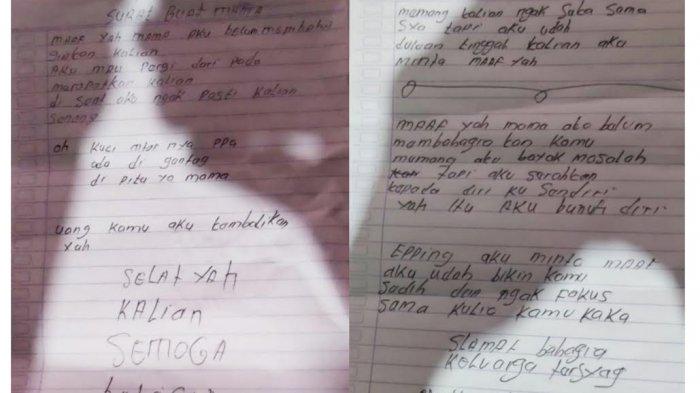 SURAT BUAT MAMA
MAAF Yah MAMA AKU belum membaha
giakan KALIAN
AKU MAU Pergi dari pada
merepotkan kalian
di sent aku ngak pasti kalian
senang
oh kuci mtor nya ppa
ada di gantag
di pitu ya mama
uang kamu aku kambalikan
Yah
SELAT YAH
KALIAN
SEMOGA
memang kalian ngak suka sama
sya tapi aku udah
duluan tinggah kalian aku
minta maaf yah
MAAF yah mama aku balum
mambahagia kan kamu
mumang aku bayak masalah
tapi aku sarahkan
kapada diri ku sandiri
Yah Itu AKU bunuh diri
EPPing aku minta MAAF
aku udah bikin kamu
sadih dan ngak fokus
sama kulia kamu kaka
SLAMAT bahagia
keluarga tarsyag